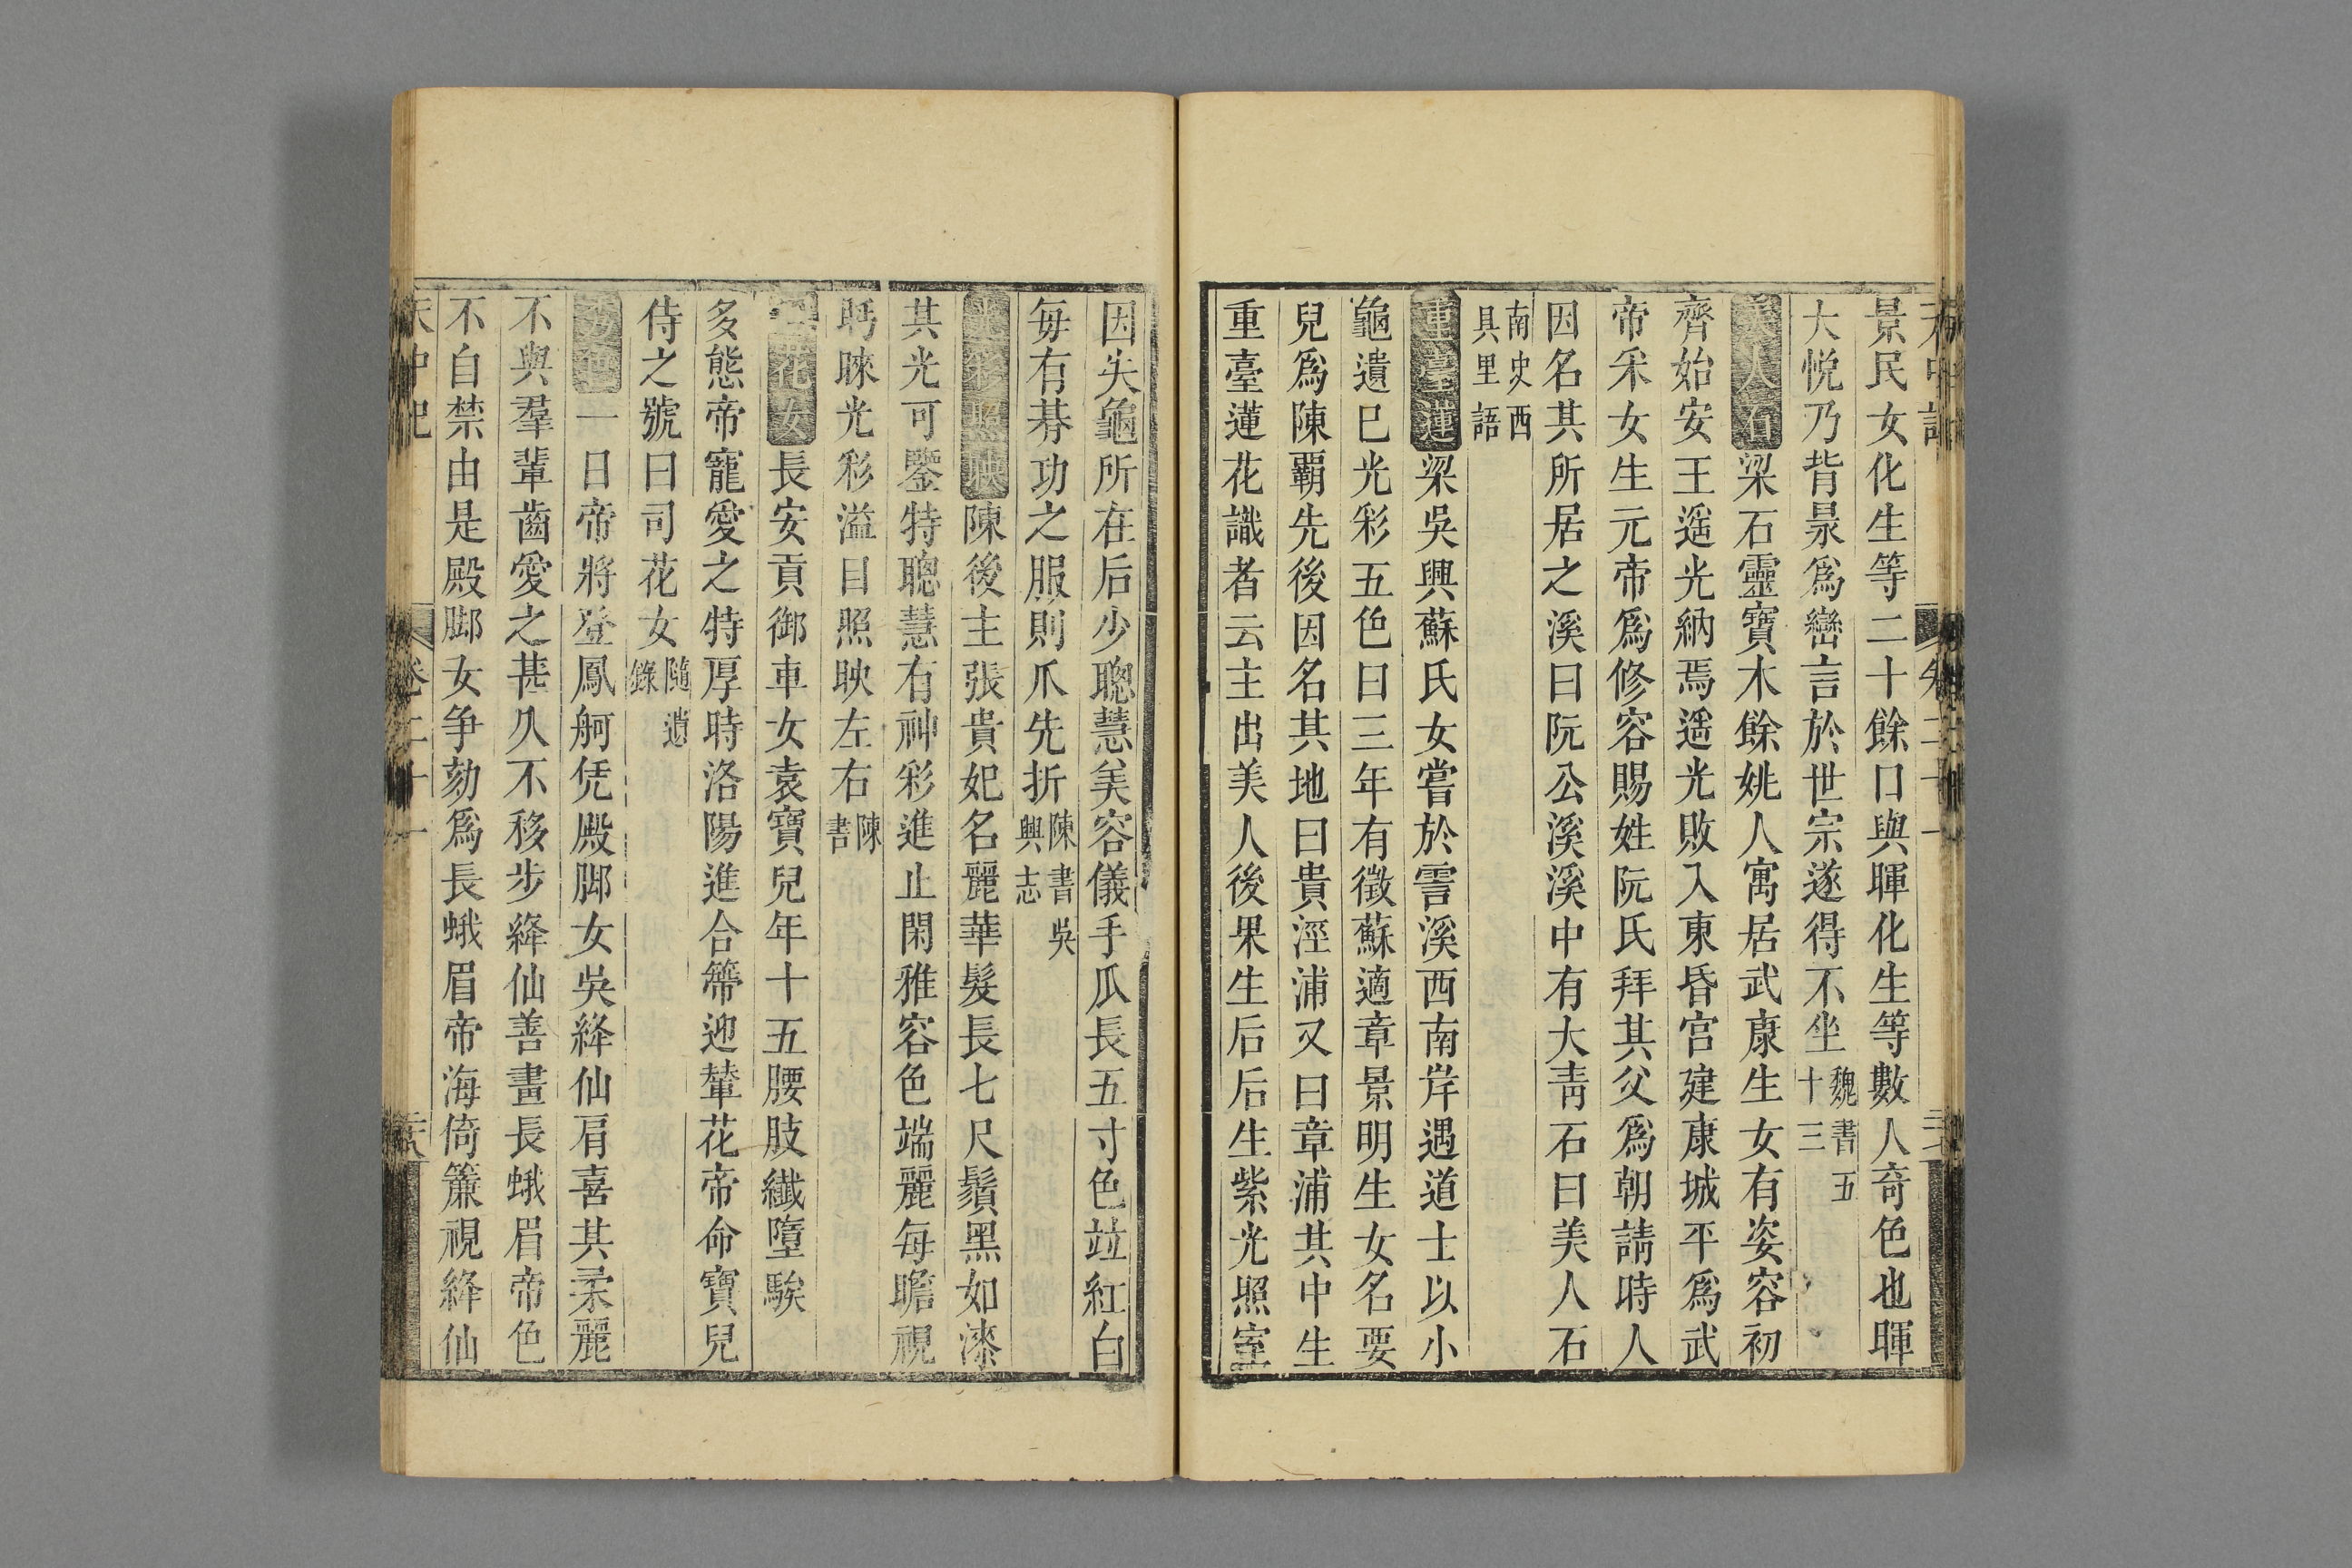 景民女化生等二十餘口與暉化生等數人竒色也暉
大悅乃背景爲巒言於世宗遂得不坐魏書五十三
美人石梁石靈寶木餘姚人寓居武康生女有姿容初
齊始安王遥光納焉遥光敗入東昏宮建康城平爲武
帝采女生元帝爲修容賜姓阮氏拜其父爲朝請時人
因名其所居之溪曰阮公溪溪中有大青石曰美人石
南史西具里語
重臺蓮梁吳興蘇氏女嘗於霅溪西南岸遇道士以小
龜遺巳光彩五色曰三年有徵蘇適章景明生女名要
兒爲陳覇先後因名其地曰貴涇浦又曰章浦其中生
重臺蓮花識者云主出美人後果生后后生紫光照室
因失龜所在后少聰慧美容儀手瓜長五寸色竝紅白
毎有朞功之服則爪先折陳書吳興志
光彩照映陳後主張貴妃名麗華髮長七尺鬚黑如漆
其光可鑒特聰慧有神彩進止閑雅容色端麗毎瞻視
眄睞光彩溢目照映左右陳書
司花女長安貢御車女袁寶兒年十五腰肢纎墮騃
多態帝寵愛之特厚時洛陽進合蔕迎輦花帝命寶兒
侍之號曰司花女隨遺錄
一日帝將登鳳舸凭殿脚女吳絳仙肩喜其柔麗
不與羣輩齒愛之甚久不移步絳仙善畫長蛾眉帝色
不自禁由是殿脚女争効爲長蛾眉帝海倚簾視絳仙
天中記
卷二十一